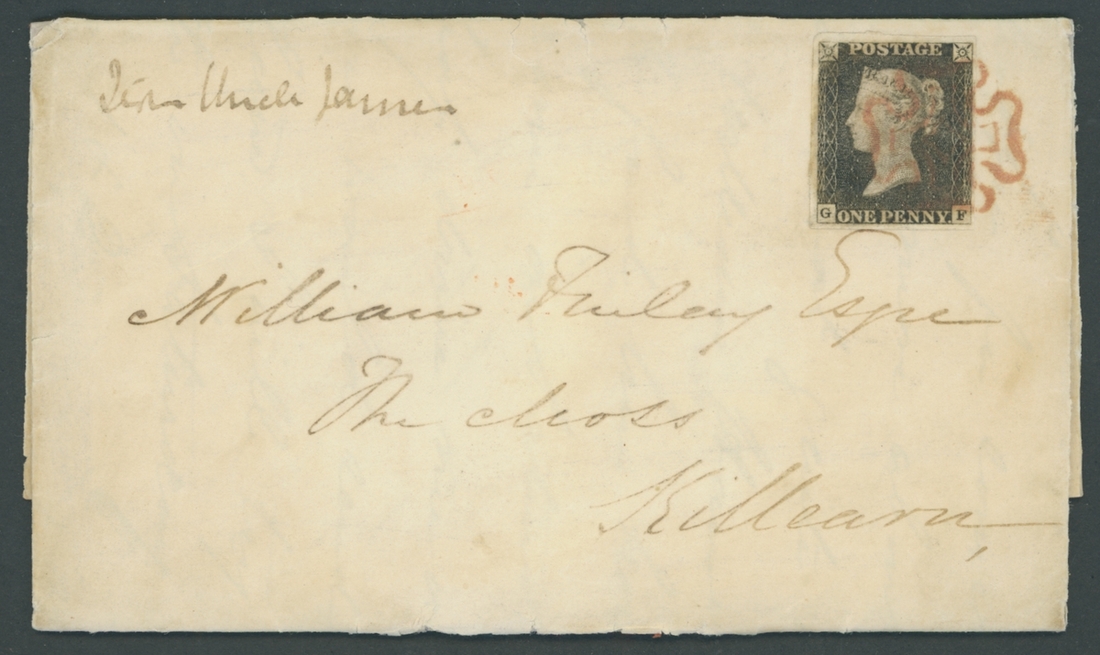 Uncle James
POSTAGE
G ONE PENNY. F
William Finlay Esqre
The Moss
Killearn,